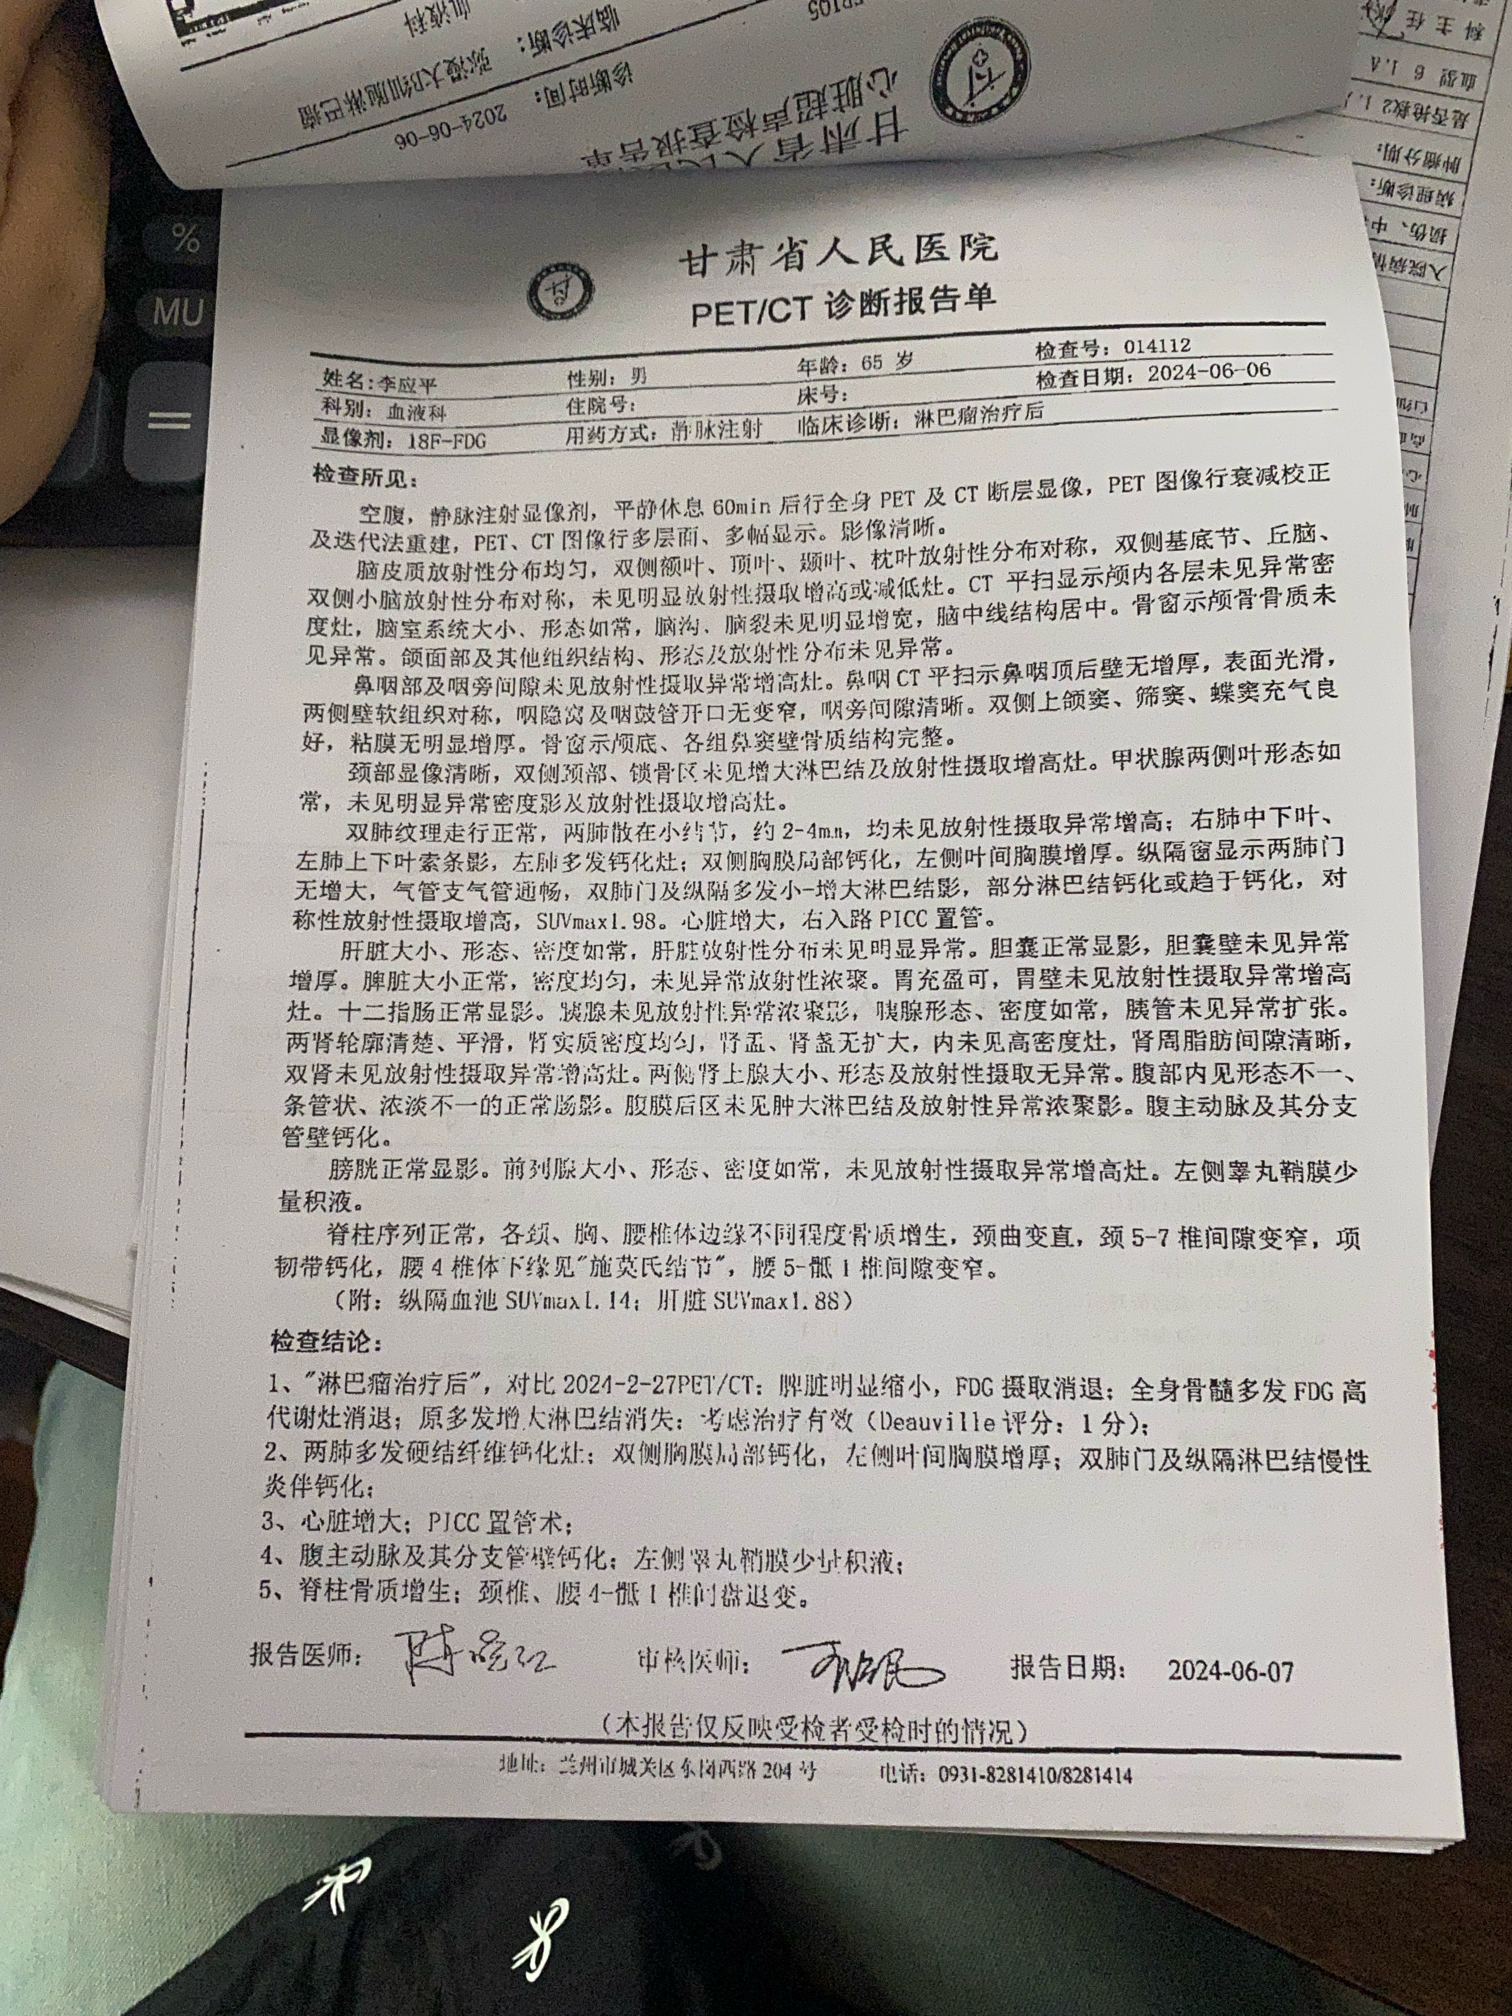 科主任
血型 6 1.A
是否抢救2 1.
肿瘤分期:
病理诊断:
损伤、中
入院病情
血液科
临床诊断: 弥漫大B细胞淋巴瘤
诊断时间: 2024-06-06
心脏超声检查报告单
甘肃省人民
%
MU
=
甘肃省人民医院
PET/CT 诊断报告单
姓名:李应平 性别: 男 年龄: 65 岁 检查号: 014112
科别: 血液科 住院号: 床号: 检查日期: 2024-06-06
显像剂: 18F-FDG 用药方式: 静脉注射 临床诊断: 淋巴瘤治疗后
检查所见:
空腹，静脉注射显像剂，平静休息 60min 后行全身 PET 及 CT 断层显像，PET 图像行衰减校正
及迭代法重建，PET、CT 图像行多层面、多幅显示。影像清晰。
脑皮质放射性分布均匀，双侧额叶、顶叶、颞叶、枕叶放射性分布对称，双侧基底节、丘脑、
双侧小脑放射性分布对称，未见明显放射性摄取增高或减低灶。CT 平扫显示颅内各层未见异常密
度灶，脑室系统大小、形态如常，脑沟、脑裂未见明显增宽，脑中线结构居中。骨窗示颅骨骨质未
见异常。颌面部及其他组织结构、形态及放射性分布未见异常。
鼻咽部及咽旁间隙未见放射性摄取异常增高灶。鼻咽 CT 平扫示鼻咽顶后壁无增厚，表面光滑，
两侧壁软组织对称，咽隐窝及咽鼓管开口无变窄，咽旁间隙清晰。双侧上颌窦、筛窦、蝶窦充气良
好，粘膜无明显增厚。骨窗示颅底、各组鼻窦壁骨质结构完整。
颈部显像清晰，双侧颈部、锁骨区未见增大淋巴结及放射性摄取增高灶。甲状腺两侧叶形态如
常，未见明显异常密度影及放射性摄取增高灶。
双肺纹理走行正常，两肺散在小结节，约 2-4mm，均未见放射性摄取异常增高；右肺中下叶、
左肺上下叶索条影，左肺多发钙化灶；双侧胸膜局部钙化，左侧叶间胸膜增厚。纵隔窗显示两肺门
无增大，气管支气管通畅，双肺门及纵隔多发小-增大淋巴结影，部分淋巴结钙化或趋于钙化，对
称性放射性摄取增高，SUVmax1.98。心脏增大，右入路 PICC 置管。
肝脏大小、形态、密度如常，肝脏放射性分布未见明显异常。胆囊正常显影，胆囊壁未见异常
增厚。脾脏大小正常，密度均匀，未见异常放射性浓聚。胃充盈可，胃壁未见放射性摄取异常增高
灶。十二指肠正常显影。胰腺未见放射性异常浓聚影，胰腺形态、密度如常，胰管未见异常扩张。
两肾轮廓清楚、平滑，肾实质密度均匀，肾盂、肾盏无扩大，内未见高密度灶，肾周脂肪间隙清晰，
双肾未见放射性摄取异常增高灶。两侧肾上腺大小、形态及放射性摄取无异常。腹部内见形态不一、
条管状、浓淡不一的正常肠影。腹膜后区未见肿大淋巴结及放射性异常浓聚影。腹主动脉及其分支
管壁钙化。
膀胱正常显影。前列腺大小、形态、密度如常，未见放射性摄取异常增高灶。左侧睾丸鞘膜少
量积液。
脊柱序列正常，各颈、胸、腰椎体边缘不同程度骨质增生，颈曲变直，颈 5-7 椎间隙变窄，项
韧带钙化，腰 4 椎体下缘见"施莫氏结节"，腰 5-骶 1 椎间隙变窄。
（附: 纵隔血池 SUVmax1.14; 肝脏 SUVmax1.88）
检查结论:
1、"淋巴瘤治疗后"，对比 2024-2-27PET/CT: 脾脏明显缩小，FDG 摄取消退；全身骨髓多发 FDG 高
代谢灶消退；原多发增大淋巴结消失；考虑治疗有效（Deauville 评分: 1 分）；
2、两肺多发硬结纤维钙化灶；双侧胸膜局部钙化，左侧叶间胸膜增厚；双肺门及纵隔淋巴结慢性
炎伴钙化；
3、心脏增大；PICC 置管术；
4、腹主动脉及其分支管壁钙化；左侧睾丸鞘膜少量积液；
5、脊柱骨质增生；颈椎、腰 4-骶 1 椎间盘退变。
报告医师: 审核医师: 报告日期: 2024-06-07
（本报告仅反映受检者受检时的情况）
地址: 兰州市城关区东岗西路 204 号 电话: 0931-8281410/8281414